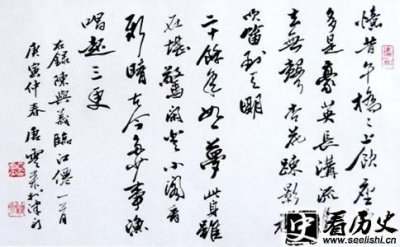 憶昔午橋々上飲座
多是豪英長溝流
去無聲杏花疎影
吹笛到天明
二十餘年如夢此身雖
在堪驚閑登小閣看
新晴古今多少事漁
唱起三更
右録陳與義臨江僊一首
庚寅仲春唐雲來書於津門
看历史
www.seelishi.cn